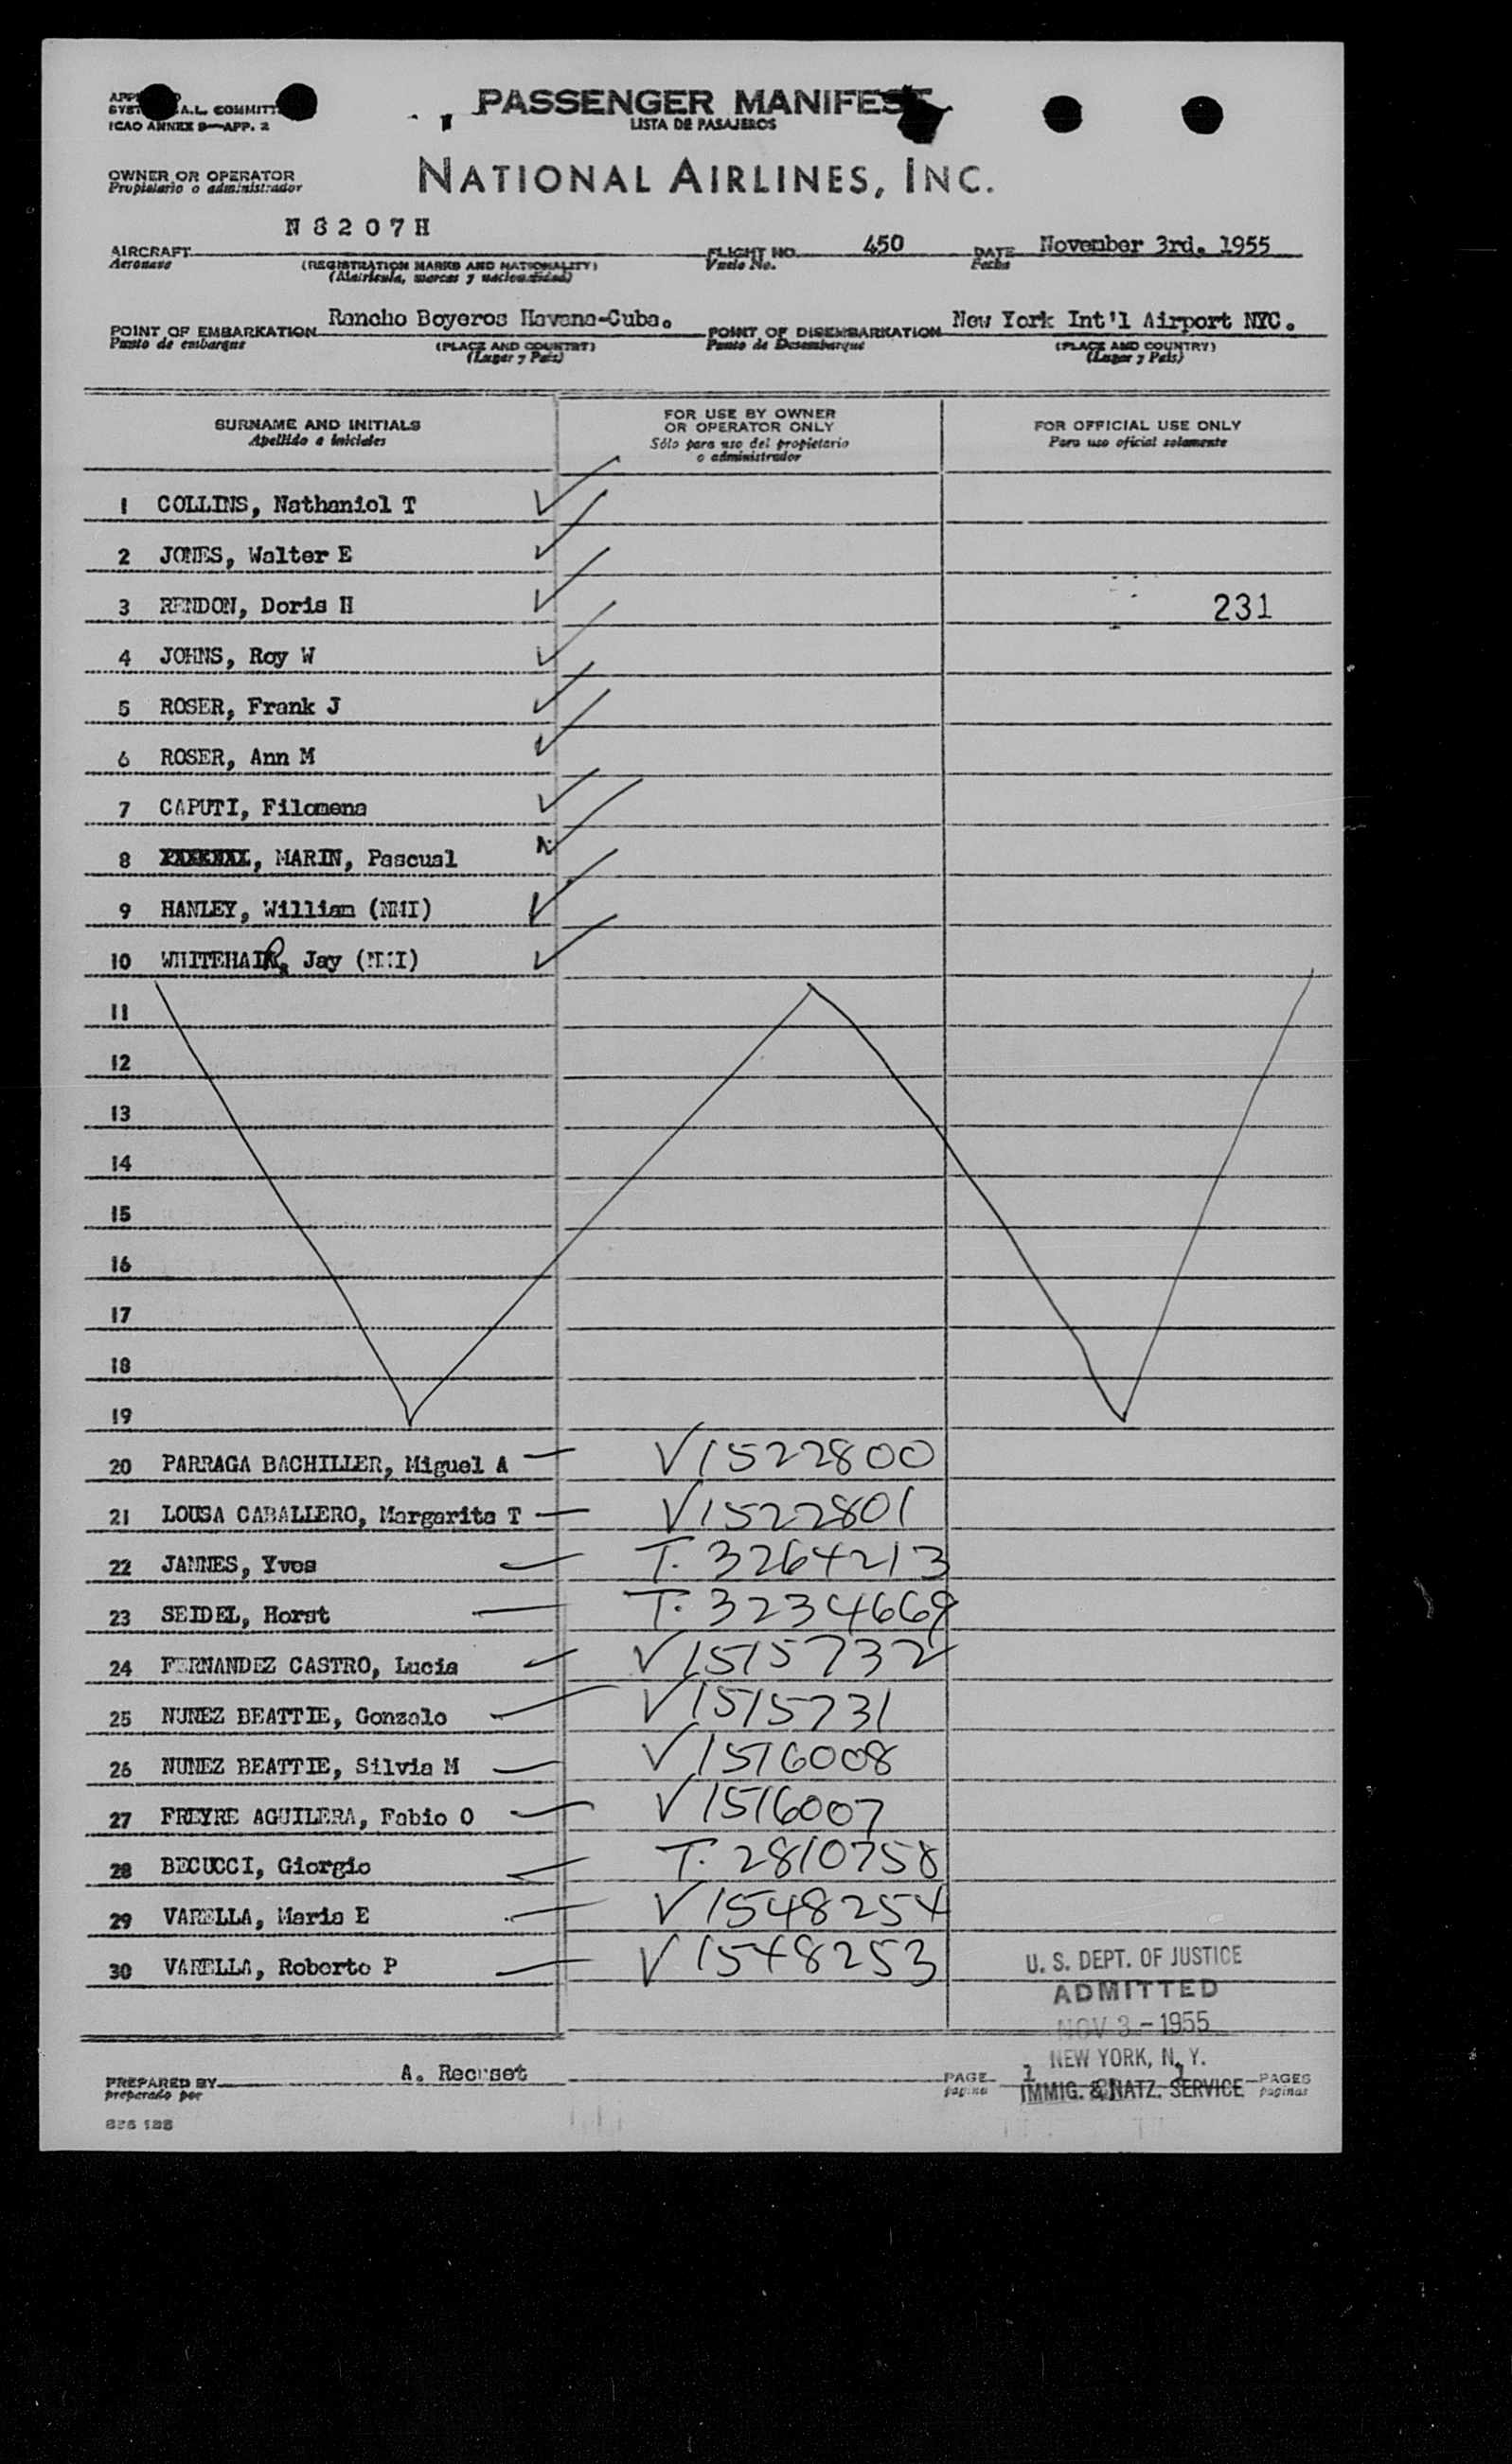 PASSENGER MANIFEST
A.L. COMMITT
ICAO ANNEX 9—APP. 2
LISTA DE PASAJEROS
OWNER OR OPERATOR
Propietario o administrador
NATIONAL AIRLINES, INC.
N 8 2 0 7 H
AIRCRAFT
Aeronave
(REGISTRATION MARKS AND NATIONALITY)
(Matrícula, marcas y nacionalidad)
FLIGHT NO. 450
Vuelo No.
DATE November 3rd. 1955
Fecha
POINT OF EMBARKATION Rancho Boyeros Havana-Cuba.
Punto de embarque
(PLACE AND COUNTRY)
(Lugar y País)
POINT OF DISEMBARKATION New York Int'l Airport NYC.
Punto de Desembarque
(PLACE AND COUNTRY)
(Lugar y País)
SURNAME AND INITIALS
Apellido e iniciales
FOR USE BY OWNER
OR OPERATOR ONLY
Sólo para uso del propietario
o administrador
FOR OFFICIAL USE ONLY
Para uso oficial solamente
1 COLLINS, Nathaniel T
2 JONES, Walter E
3 RENDON, Doris H 231
4 JOHNS, Roy W
5 ROSER, Frank J
6 ROSER, Ann M
7 CAPUTI, Filomena
8 MARIN, Pascual
9 HANLEY, William (NMI)
10 WHITEHAIR, Jay (NMI)
11
12
13
14
15
16
17
18
19
20 PARRAGA BACHILLER, Miguel A V1522800
21 LOUSA CABALLERO, Margarita T V1522801
22 JANNES, Yves T. 3264213
23 SEIDEL, Horst T. 3234669
24 FERNANDEZ CASTRO, Lucia V1515732
25 NUNEZ BEATTIE, Gonzalo V1515731
26 NUNEZ BEATTIE, Silvia M V1516008
27 FREYRE AGUILERA, Fabio O V1516007
28 BECUCCI, Giorgio T. 2810758
29 VARELLA, Maria E V1548254
30 VARELLA, Roberto P V1548253
U. S. DEPT. OF JUSTICE
ADMITTED
NOV 3 - 1955
NEW YORK, N. Y.
IMMIG. & NATZ. SERVICE
PREPARED BY A.
preparado por
PAGE 1 1 PAGES
página páginas